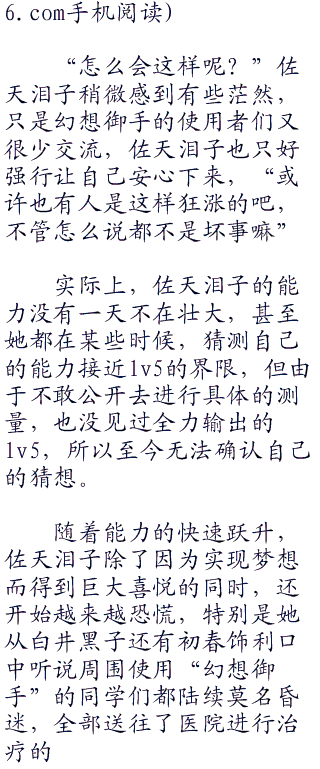 6.com手机阅读)
“怎么会这样呢？”佐
天泪子稍微感到有些茫然，
只是幻想御手的使用者们又
很少交流，佐天泪子也只好
强行让自己安心下来，“或
许也有人是这样狂涨的吧，
不管怎么说都不是坏事嘛”
实际上，佐天泪子的能
力没有一天不在壮大，甚至
她都在某些时候，猜测自己
的能力接近lv5的界限，但由
于不敢公开去进行具体的测
量，也没见过全力输出的
lv5，所以至今无法确认自己
的猜想。
随着能力的快速跃升，
佐天泪子除了因为实现梦想
而得到巨大喜悦的同时，还
开始越来越恐慌，特别是她
从白井黑子还有初春饰利口
中听说周围使用“幻想御
手”的同学们都陆续莫名昏
迷，全部送往了医院进行治
疗的